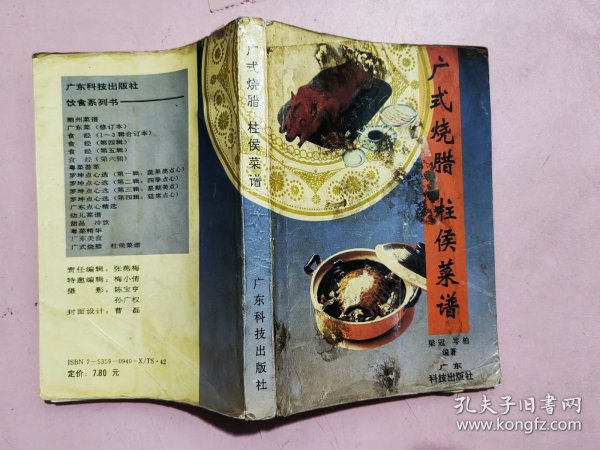 广东科技出版社
饮食系列书
潮州菜谱
广东菜（修订本）
食 经（1～3辑合订本）
食 经（第四辑）
食 经（第五辑）
食 经（第六辑）
粤菜荟萃
罗坤点心选（第一辑，蔬果类点心）
罗坤点心选（第二辑，四季点心）
罗坤点心选（第三辑，星期美点）
罗坤点心选（第四辑，筵席点心）
广东点心精选
幼儿菜谱
甜品 冷饮
粤菜精华
广东美食
广式烧腊 柱侯菜谱
责任编辑：张燕梅
特邀编辑：梅小倩
摄 影：陈宝亨
孙广权
封面设计：曹磊
ISBN 7-5359-0940-X/TS·42
定价：7.80 元
广式烧腊 柱侯菜谱
广东科技出版社
广式烧腊 柱侯菜谱
梁冠 岑艳
编著
广东
科技出版社
孔夫子旧书网
www.kongfz.com